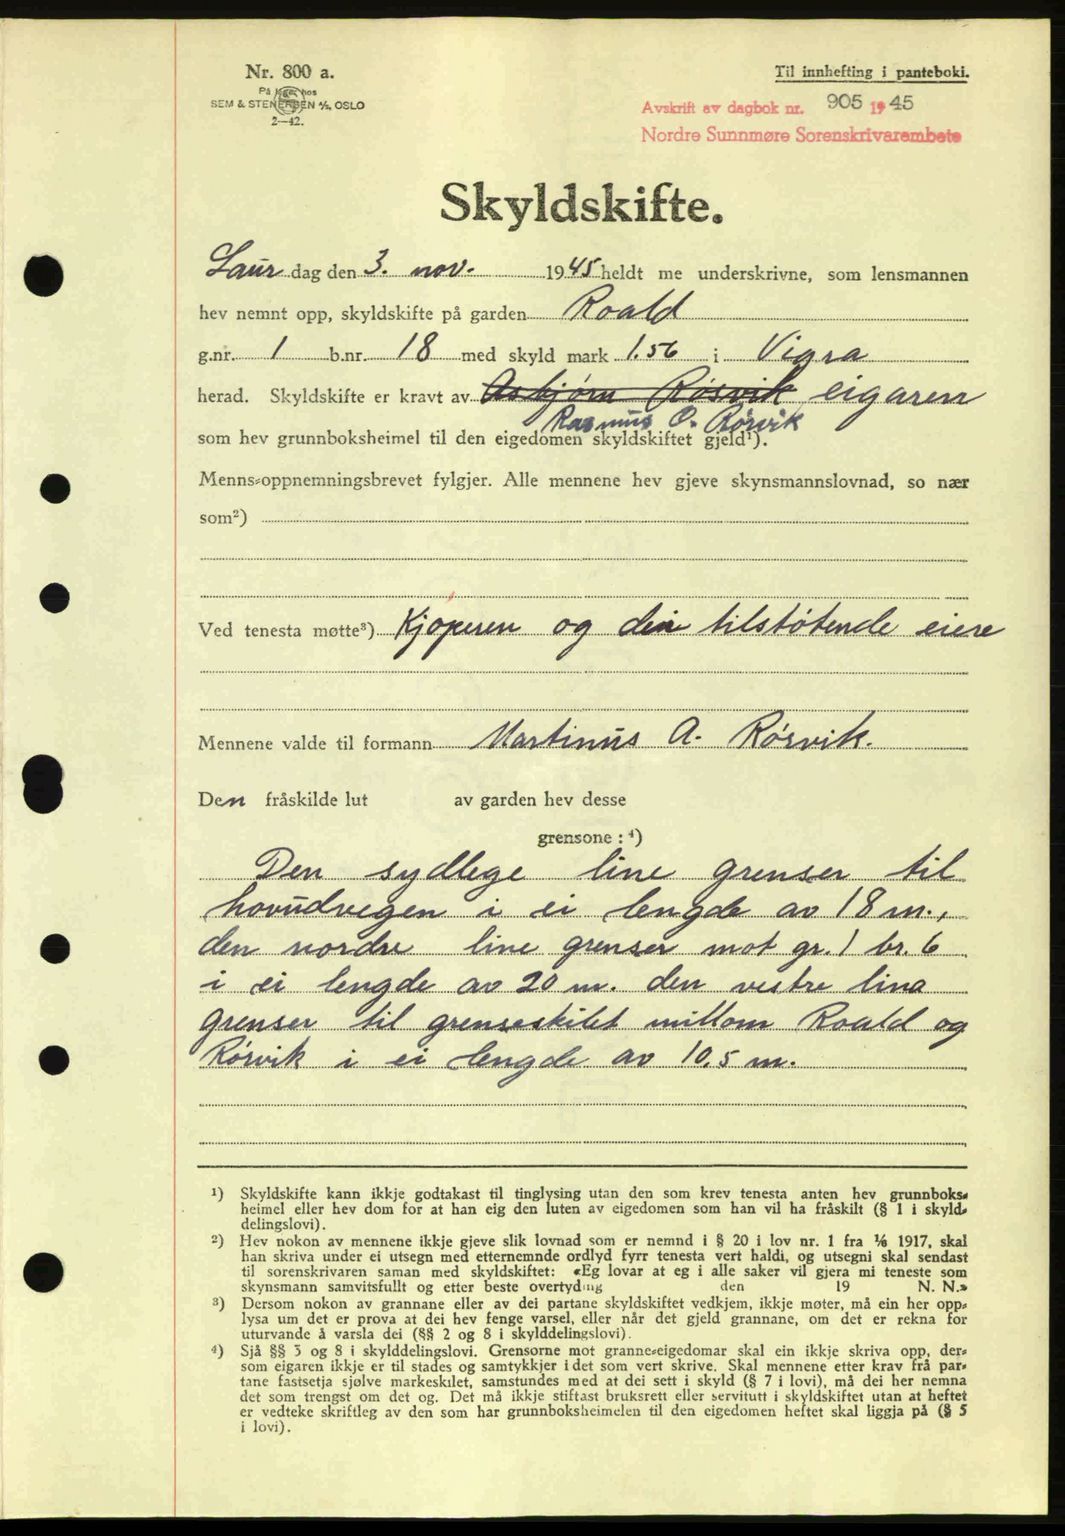 Nr. 800 a.
På lager hos
SEM & STENERSEN A/S, OSLO
2—42.
Til innhefting i panteboki.
Avskrift av dagbok nr. 905 1945
Nordre Sunnmøre Sorenskrivarembete
Skyldskifte.
Laurdag den 3. nov. 1945 heldt me underskrivne, som lensmannen
hev nemnt opp, skyldskifte på garden Roald
g.nr. 1 b.nr. 18 med skyld mark 1.56 i Vigra
herad. Skyldskifte er kravt av Asbjørn Røsvik eigaren
Rasmus O. Rørvik
som hev grunnboksheimel til den eigedomen skyldskiftet gjeld¹).
Menns-oppnemningsbrevet fylgjer. Alle mennene hev gjeve skynsmannslovnad, so nær
som²)
Ved tenesta møtte³) Kjøperen og den tilstøtende eiere
Mennene valde til formann Martinus A. Rørvik.
Den fråskilde lut av garden hev desse
grensone : ⁴)
Den sydlege line grenser til
hovudvegen i ei lengde av 18 m.,
den nordre line grenser mot gr. 1 br. 6
i ei lengde av 20 m. den vestre lina
grenser til grenseskilet millom Roald og
Rørvik i ei lengde av 10.5 m.
¹) Skyldskifte kann ikkje godtakast til tinglysing utan den som krev tenesta anten hev grunnboks-
heimel eller hev dom for at han eig den luten av eigedomen som han vil ha fråskilt (§ 1 i skyld-
delingslovi).
²) Hev nokon av mennene ikkje gjeve slik lovnad som er nemnd i § 20 i lov nr. 1 fra 1/6 1917, skal
han skriva under ei utsegn med etternemnde ordlyd fyrr tenesta vert haldi, og utsegni skal sendast
til sorenskrivaren saman med skyldskiftet: «Eg lovar at eg i alle saker vil gjera mi teneste som
skynsmann samvitsfullt og etter beste overtyding den 19 N. N.»
³) Dersom nokon av grannane eller av dei partane skyldskiftet vedkjem, ikkje møter, må ein her opp-
lysa um det er prova at dei hev fenge varsel, eller når det gjeld grannane, om det er rekna for
uturvande å varsla dei (§§ 2 og 8 i skylddelingslovi).
⁴) Sjå §§ 3 og 8 i skylddelingslovi. Grensorne mot granne-eigedomar skal ein ikkje skriva opp, der-
som eigaren ikkje er til stades og samtykkjer i det som vert skrive. Skal mennene etter krav frå par-
tane fastsetja sjølve markeskilet, samstundes med at dei sett i skyld (§ 7 i lovi), må dei her nemna
det som trengst om det og. Det må ikkje stiftast bruksrett eller servitutt i skyldskiftet utan at heftet
er vedteke skriftleg av den som har grunnboksheimelen til den eigedomen heftet skal liggja på (§ 5
i lovi).